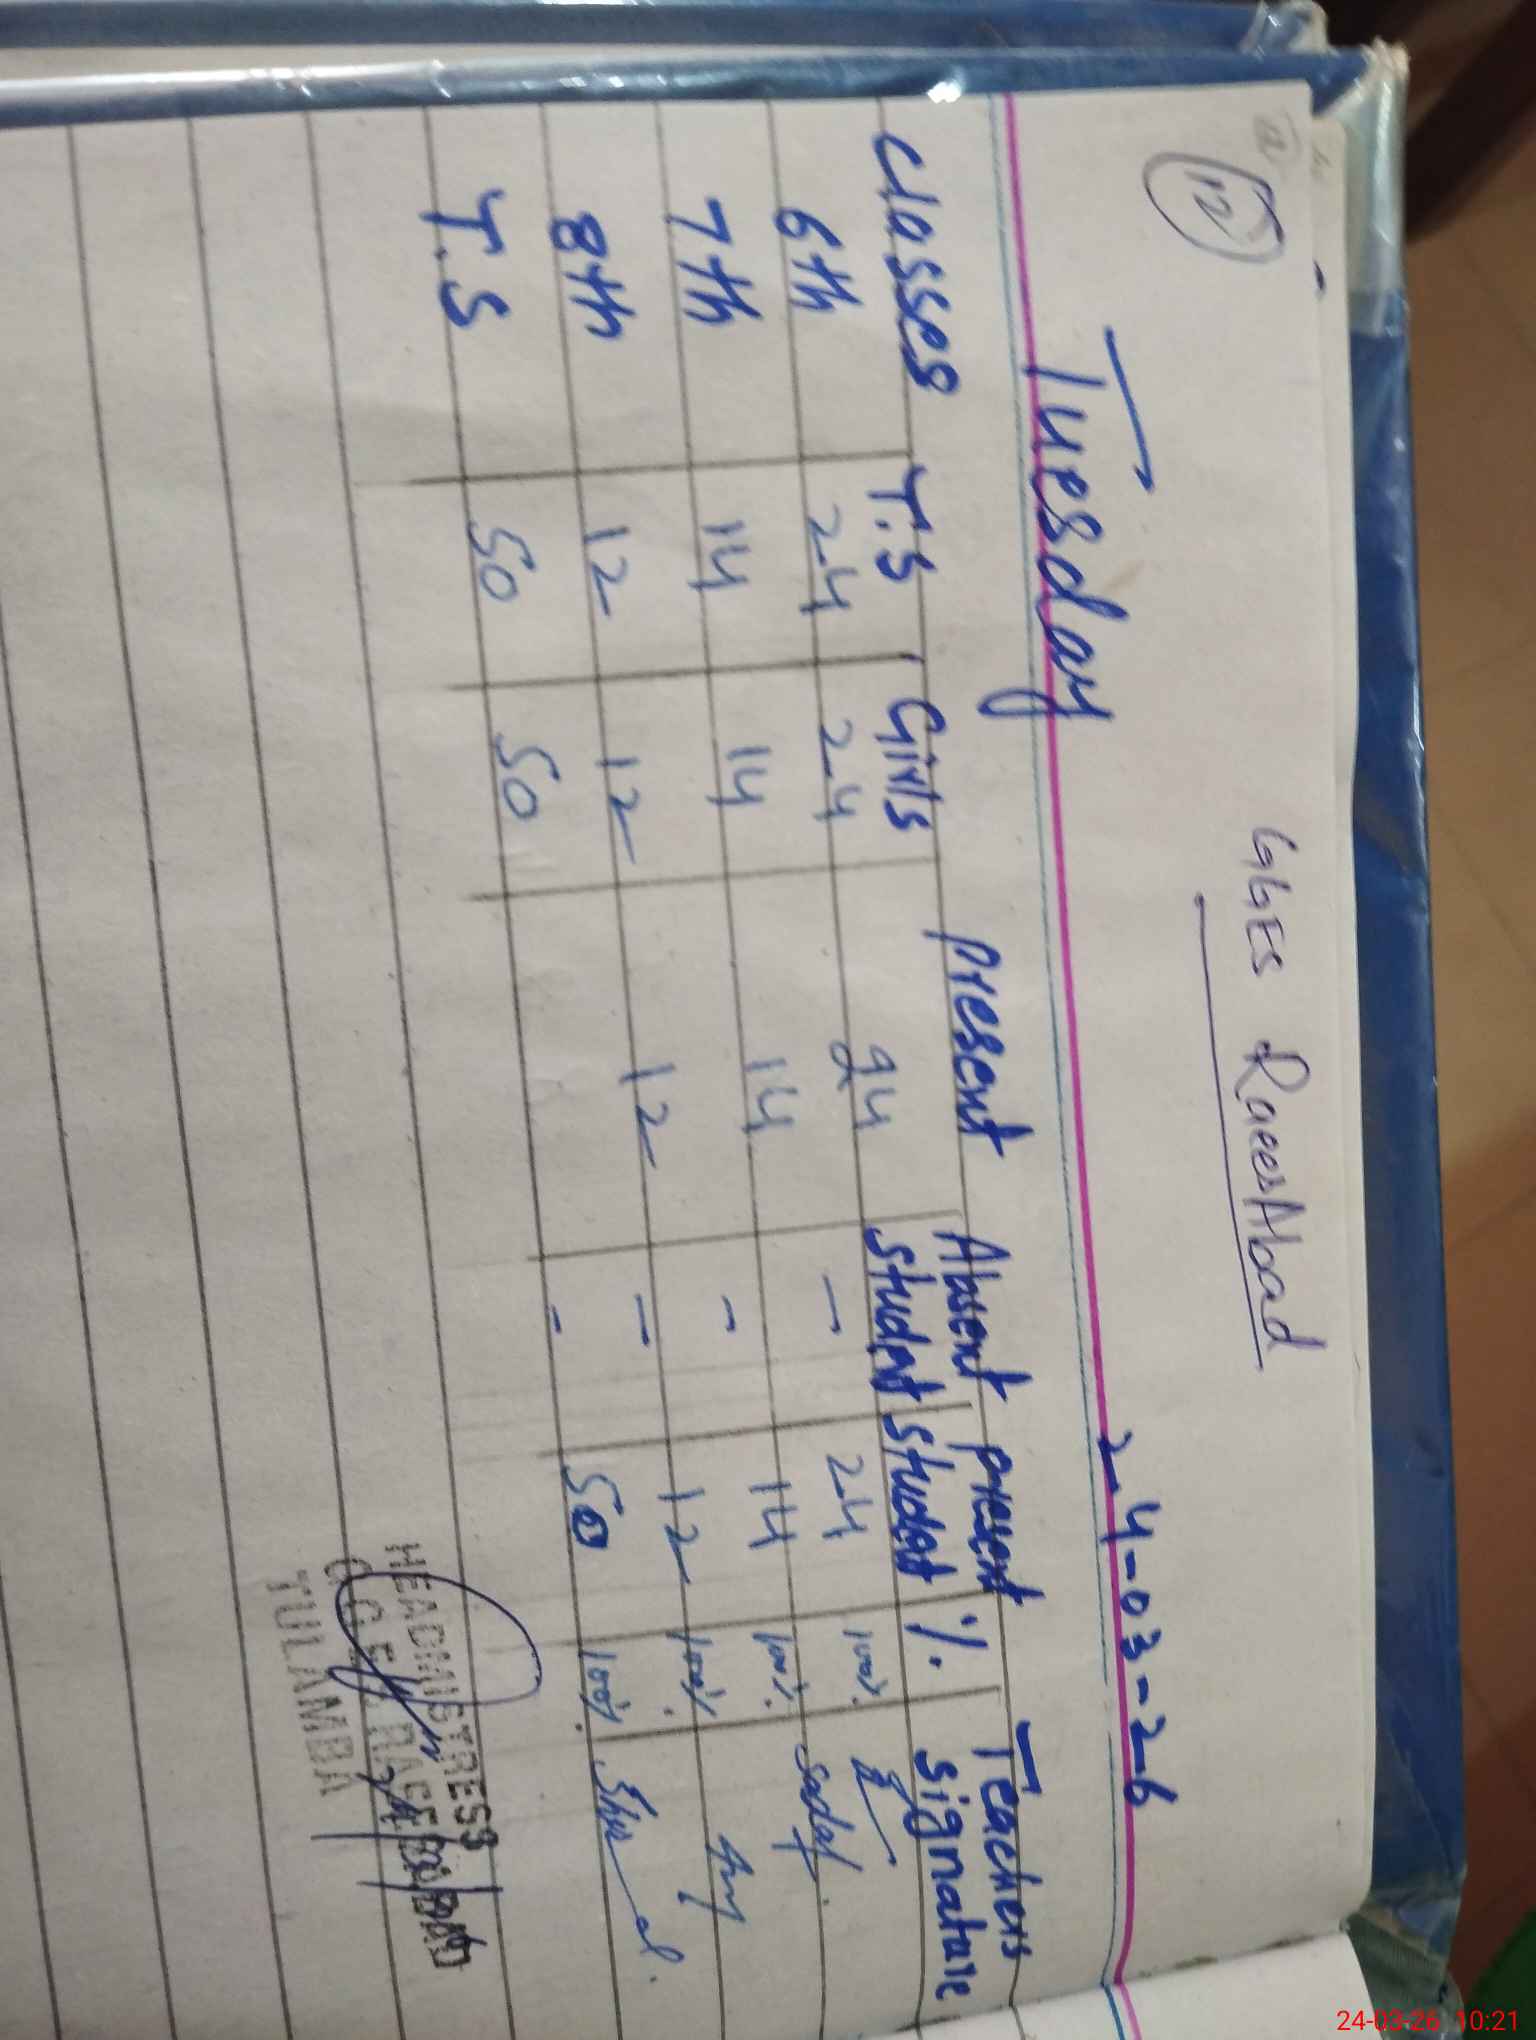 12
GGES RaeesAbad
Tuesday 24-03-26
Classes T.S Girls Present Absent Student Present Student %. Teachers Signature
6th 24 24 24 - 24 100%.
7th 14 14 14 - 14 100%. Sadaf.
8th 12 12 12 - 12 100%.
T.S 50 50 - 50 100%.
HEADMISTRESS
G.G.E.S RAEESABAD
TULAMBA
24-03-26 10:21